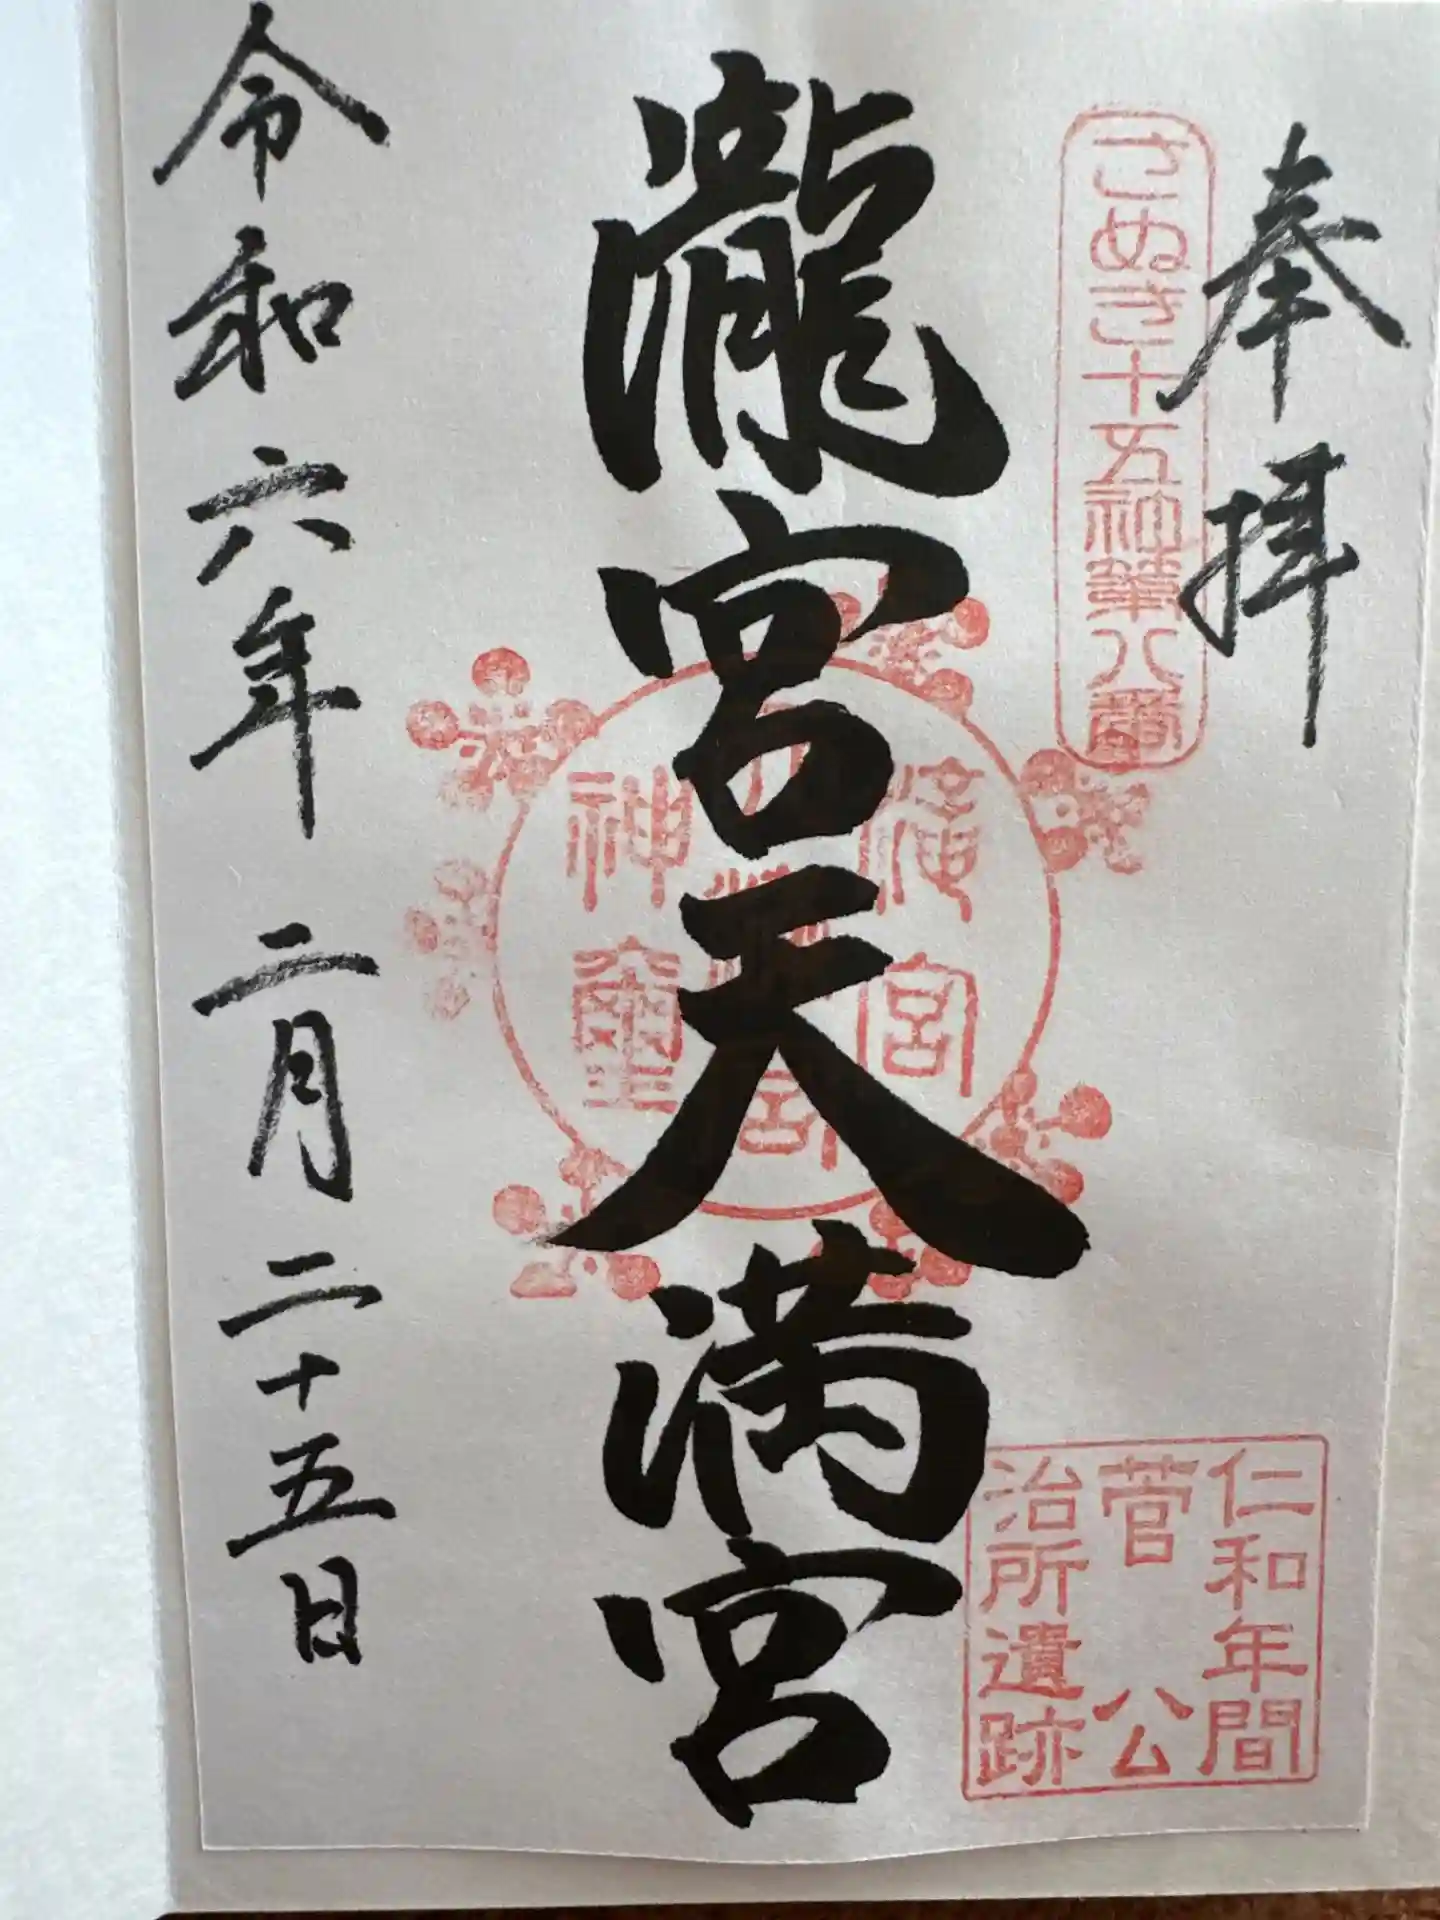 奉拝
さぬき十五社第八番
瀧宮天満宮
滝宮
天満宮
神璽
仁和年間
菅公
治所遺跡
令和六年二月二十五日